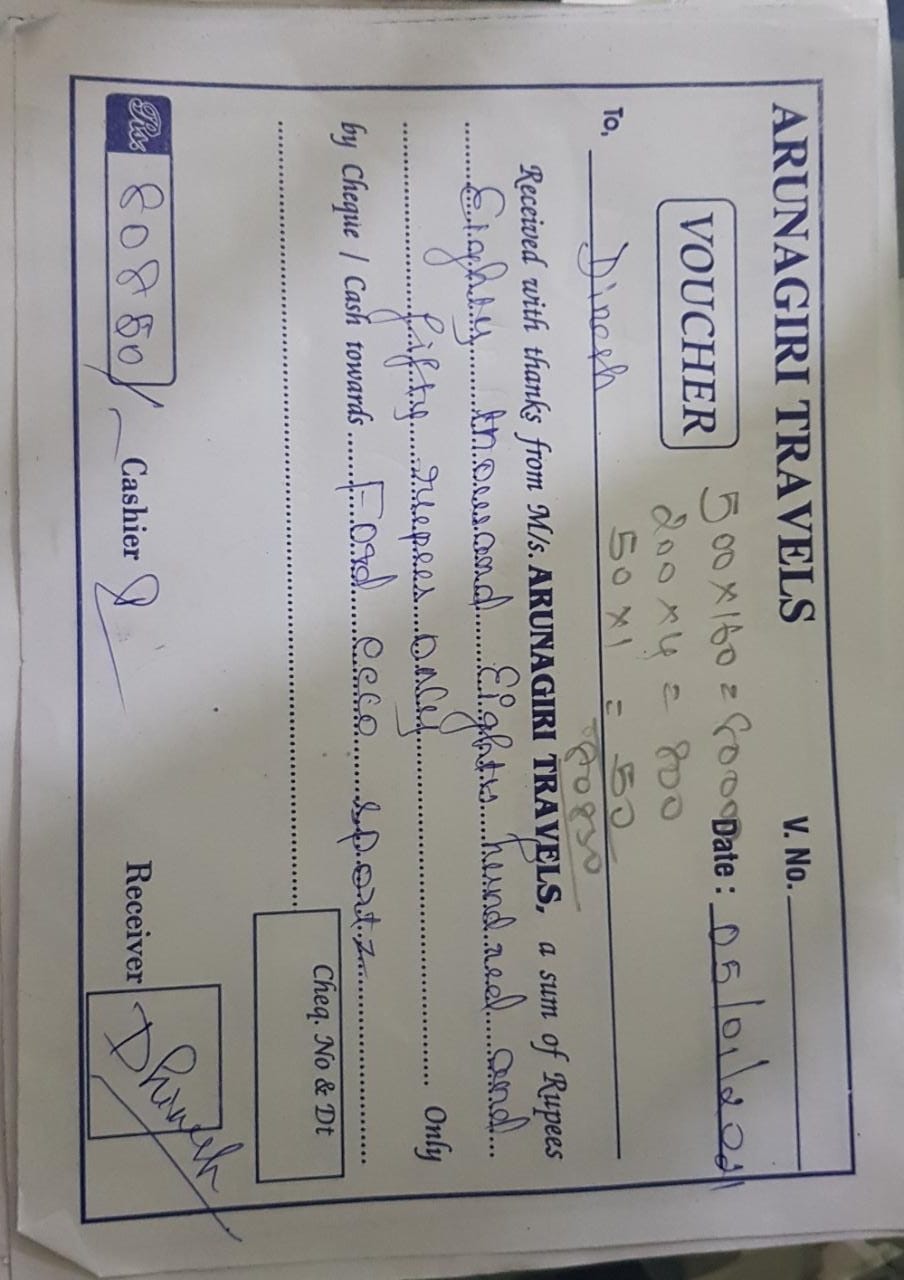 ARUNAGIRI TRAVELS
V. No.
VOUCHER
500 x 160 = 80000
Date : 05/01/2021
200 x 4 = 800
50 x 1 = 50
80850
To, Dinesh
Received with thanks from M/s. ARUNAGIRI TRAVELS, a sum of Rupees
Eighty thousand Eight hundred and
fifty rupees only Only
by Cheque / Cash towards Ford ecco sportz
Cheq. No & Dt
Rs. 80850/
Cashier
Receiver Dhinesh